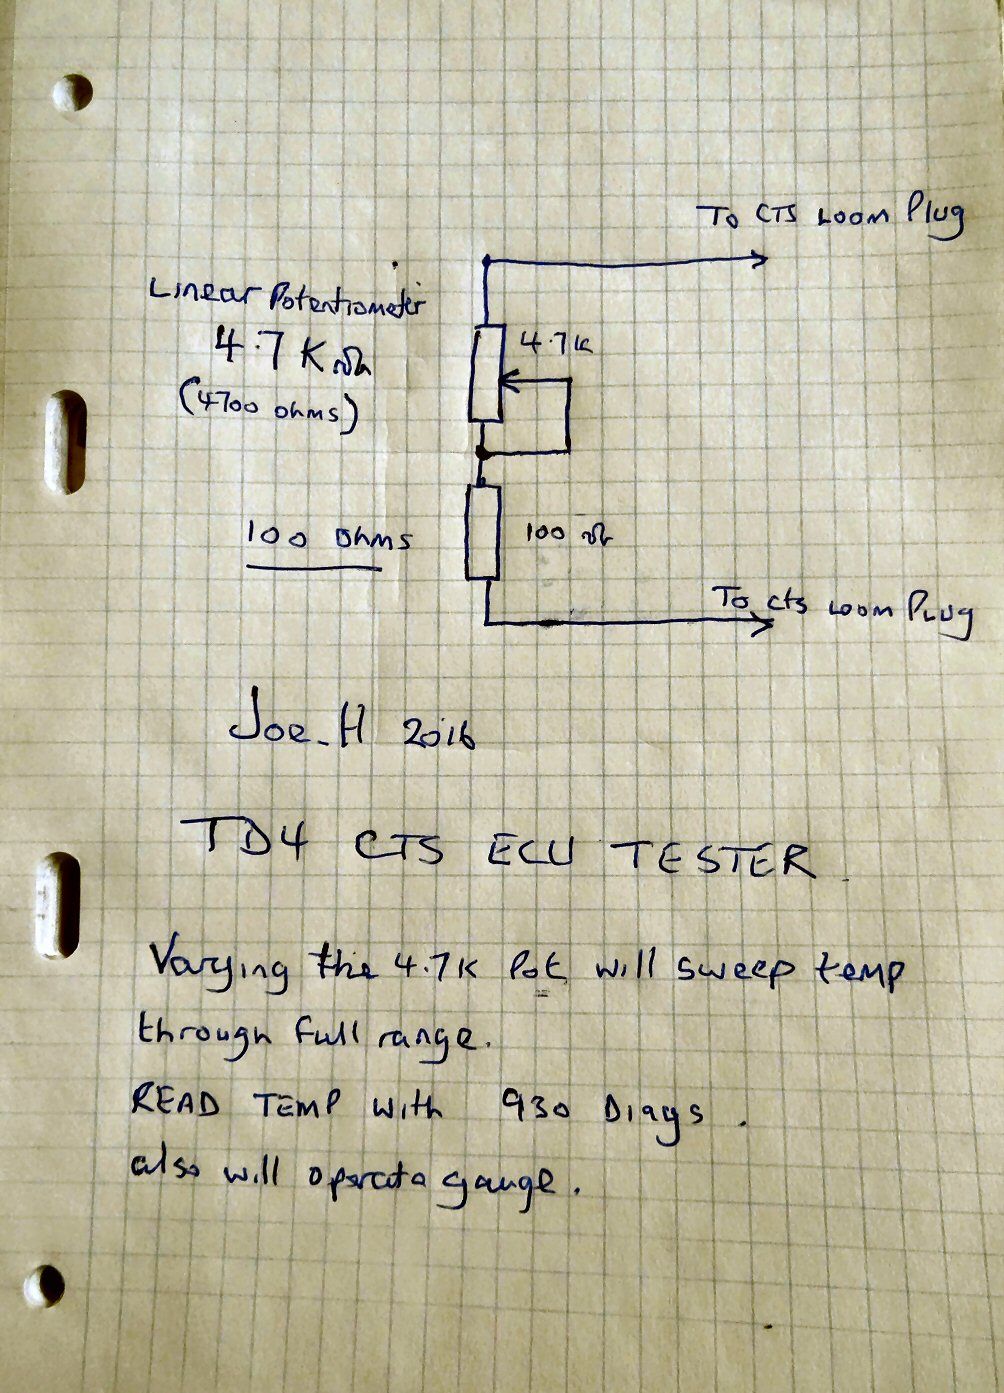 To CTS Loom Plug
Linear Potentiometer
4.7 K Ω
(4700 ohms)
4.7K
100 ohms
100 Ω
To cts Loom Plug
Joe.H 2016
TD4 CTS ECU TESTER
Varying the 4.7K Pot will sweep temp
through full range.
READ TEMP with 930 Diags.
also will operate gauge.